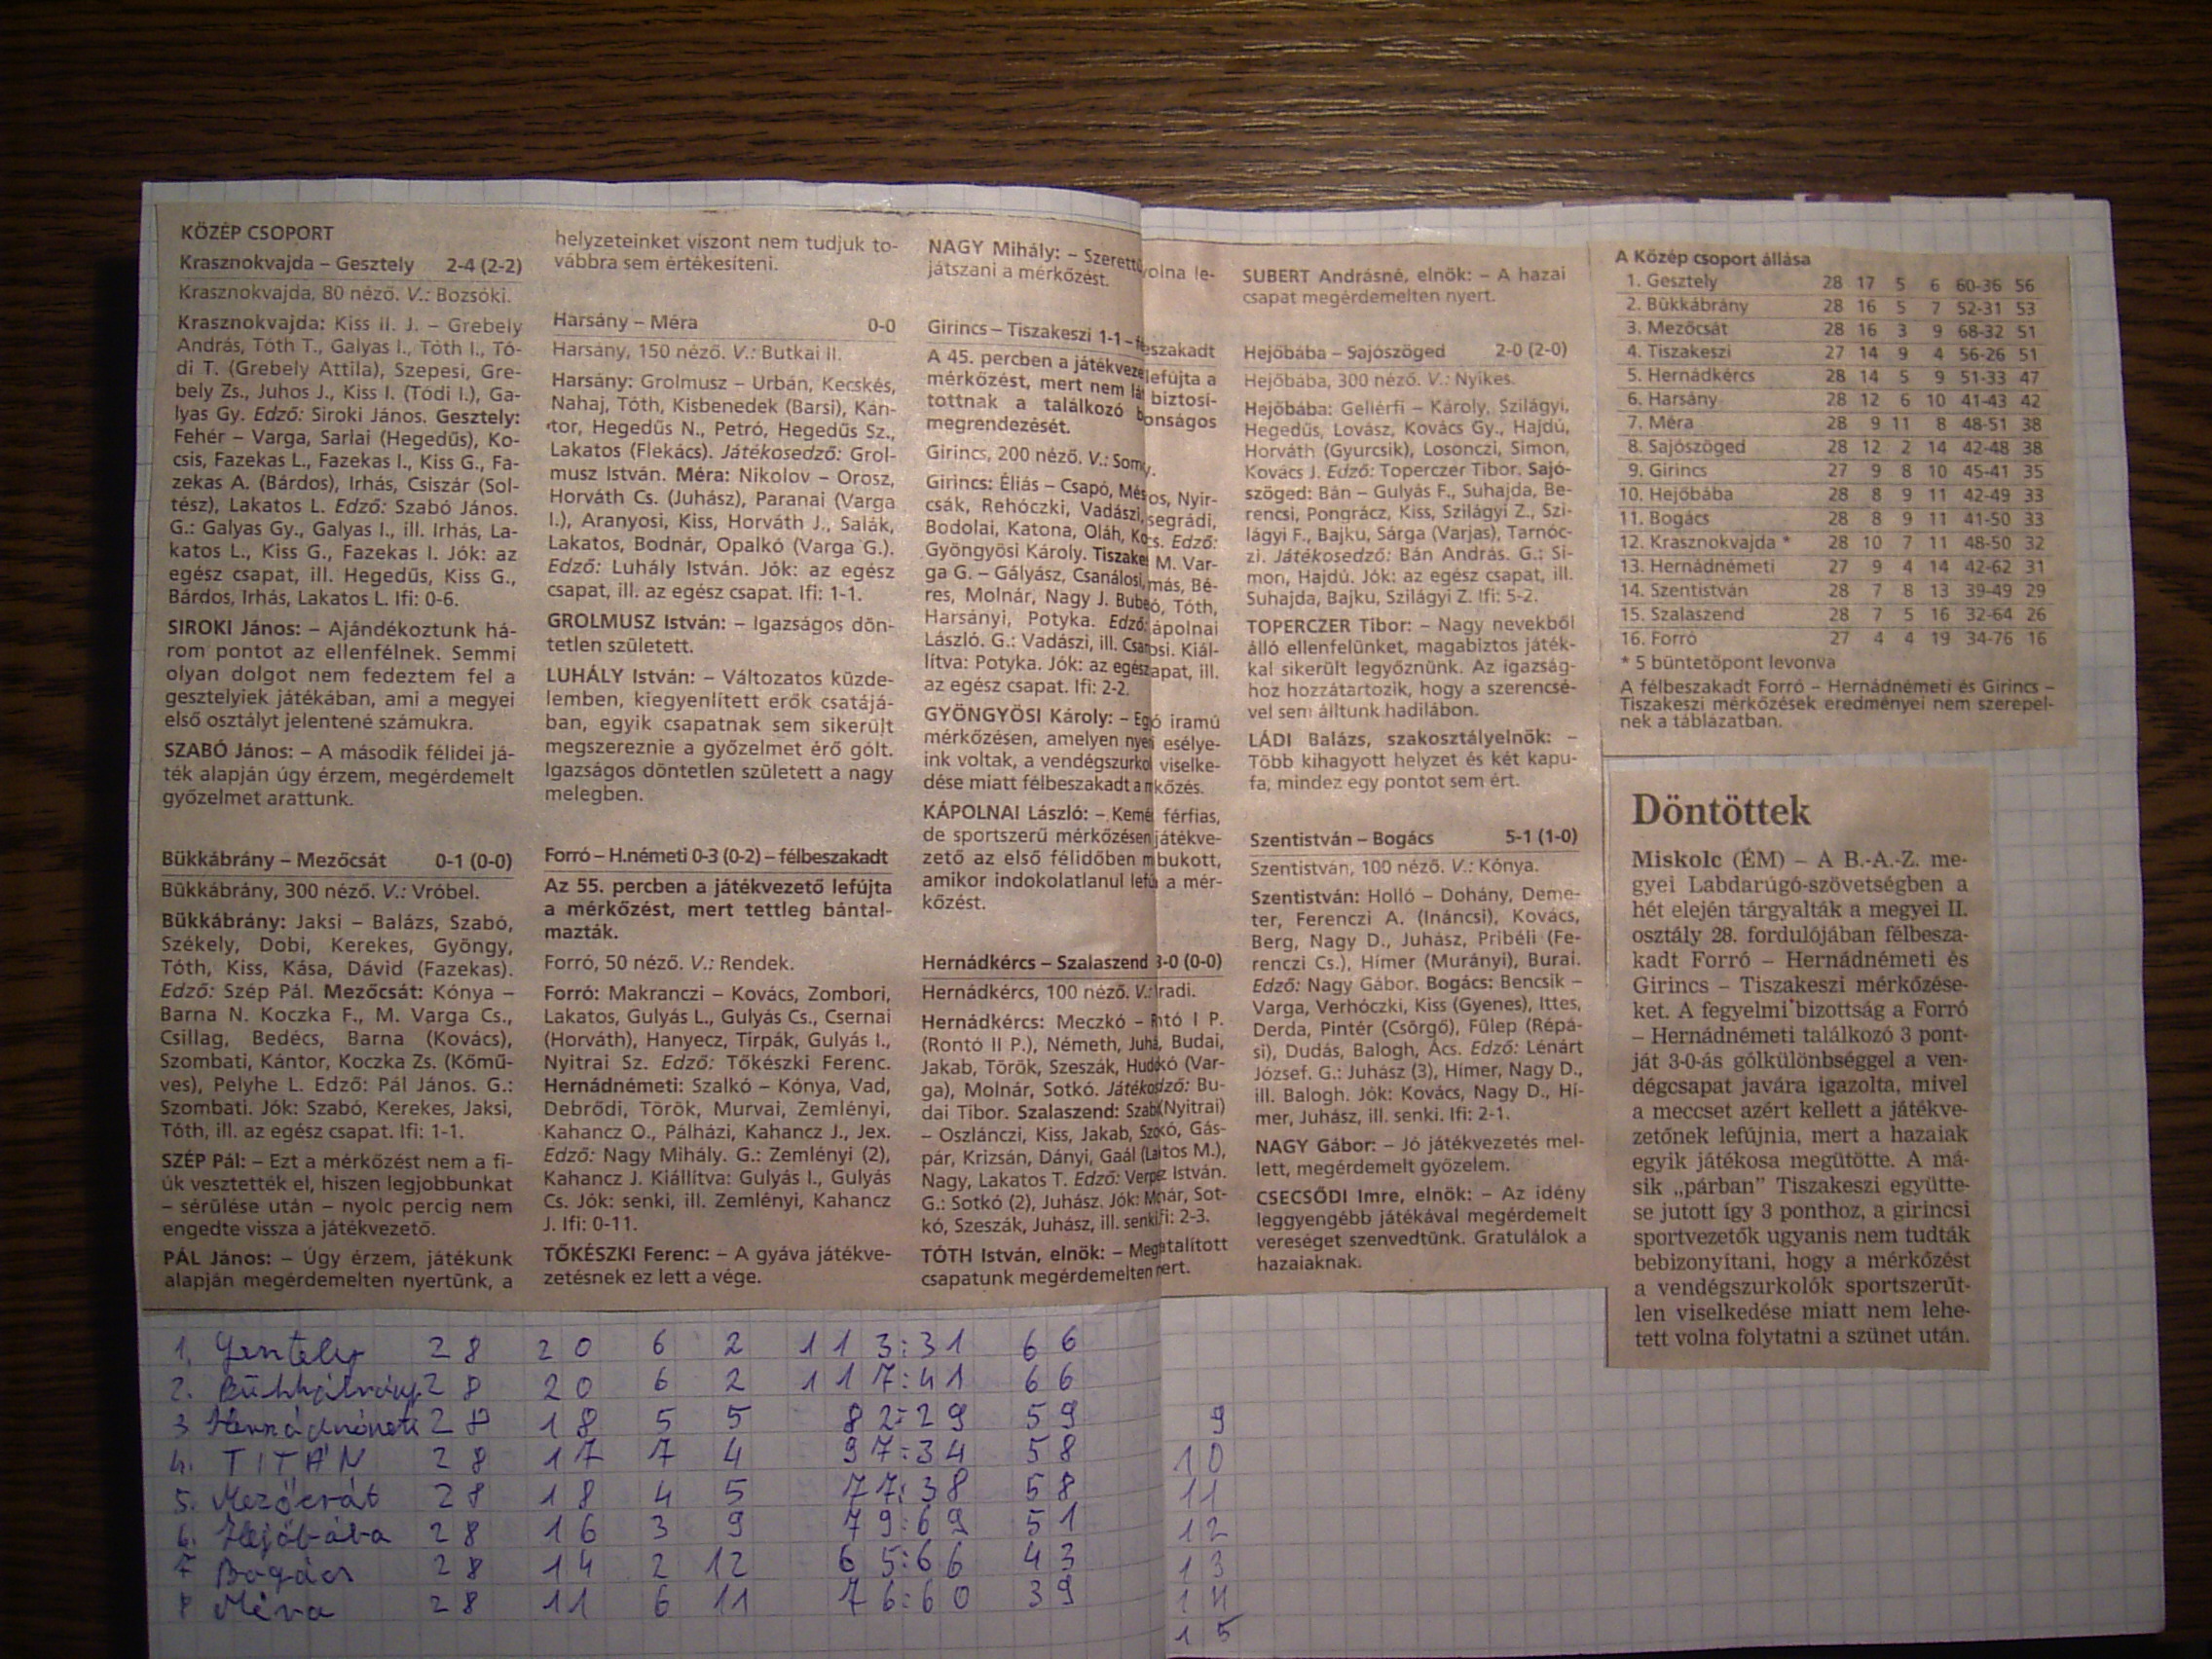 KÖZÉP CSOPORT
Krasznokvajda – Gesztely 2-4 (2-2)
Krasznokvajda, 80 néző. V.: Bozsóki.
Krasznokvajda: Kiss II. J. – Grebely
András, Tóth T., Galyas I., Tóth I., Tó-
di T. (Grebely Attila), Szepesi, Gre-
bely Zs., Juhos J., Kiss I. (Tódi I.), Ga-
lyas Gy. Edző: Siroki János. Gesztely:
Fehér – Varga, Sarlai (Hegedűs), Ko-
csis, Fazekas L., Fazekas I., Kiss G., Fa-
zekas A. (Bárdos), Irhás, Csiszár (Sol-
tész), Lakatos L. Edző: Szabó János.
G.: Galyas Gy., Galyas I., ill. Irhás, La-
katos L., Kiss G., Fazekas I. Jók: az
egész csapat, ill. Hegedűs, Kiss G.,
Bárdos, Irhás, Lakatos L. Ifi: 0-6.
SIROKI János: – Ajándékoztunk há-
rom pontot az ellenfélnek. Semmi
olyan dolgot nem fedeztem fel a
gesztelyiek játékában, ami a megyei
első osztályt jelentené számukra.
SZABÓ János: – A második félidei já-
ték alapján úgy érzem, megérdemelt
győzelmet arattunk.
Bükkábrány – Mezőcsát 0-1 (0-0)
Bükkábrány, 300 néző. V.: Vróbel.
Bükkábrány: Jaksi – Balázs, Szabó,
Székely, Dobi, Kerekes, Gyöngy,
Tóth, Kiss, Kása, Dávid (Fazekas).
Edző: Szép Pál. Mezőcsát: Kónya –
Barna N. Koczka F., M. Varga Cs.,
Csillag, Bedécs, Barna (Kovács),
Szombati, Kántor, Koczka Zs. (Kőmű-
ves), Pelyhe L. Edző: Pál János. G.:
Szombati. Jók: Szabó, Kerekes, Jaksi,
Tóth, ill. az egész csapat. Ifi: 1-1.
SZÉP Pál: – Ezt a mérkőzést nem a fi-
úk vesztették el, hiszen legjobbunkat
– sérülése után – nyolc percig nem
engedte vissza a játékvezető.
PÁL János: – Úgy érzem, játékunk
alapján megérdemelten nyertünk, a
helyzeteinket viszont nem tudjuk to-
vábbra sem értékesíteni.
Harsány – Méra 0-0
Harsány, 150 néző. V.: Butkai II.
Harsány: Grolmusz – Urbán, Kecskés,
Nahaj, Tóth, Kisbenedek (Barsi), Kán-
tor, Hegedűs N., Petró, Hegedűs Sz.,
Lakatos (Flekács). Játékosedző: Grol-
musz István. Méra: Nikolov – Orosz,
Horváth Cs. (Juhász), Paranai (Varga
I.), Aranyosi, Kiss, Horváth J., Salák,
Lakatos, Bodnár, Opalkó (Varga G.).
Edző: Luhály István. Jók: az egész
csapat, ill. az egész csapat. Ifi: 1-1.
GROLMUSZ István: – Igazságos dön-
tetlen született.
LUHÁLY István: – Változatos küzde-
lemben, kiegyenlített erők csatájá-
ban, egyik csapatnak sem sikerült
megszereznie a győzelmet érő gólt.
Igazságos döntetlen született a nagy
melegben.
Forró – H.németi 0-3 (0-2) – félbeszakadt
Az 55. percben a játékvezető lefújta
a mérkőzést, mert tettleg bántal-
mazták.
Forró, 50 néző. V.: Rendek.
Forró: Makranczi – Kovács, Zombori,
Lakatos, Gulyás L., Gulyás Cs., Csernai
(Horváth), Hanyecz, Tirpák, Gulyás I.,
Nyitrai Sz. Edző: Tőkészki Ferenc.
Hernádnémeti: Szalkó – Kónya, Vad,
Debrődi, Török, Murvai, Zemlényi,
Kahancz O., Pálházi, Kahancz J., Jex.
Edző: Nagy Mihály. G.: Zemlényi (2),
Kahancz J. Kiállítva: Gulyás I., Gulyás
Cs. Jók: senki, ill. Zemlényi, Kahancz
J. Ifi: 0-11.
TŐKÉSZKI Ferenc: – A gyáva játékve-
zetésnek ez lett a vége.
NAGY Mihály: – volna le-
játszani a mérkőzést.
Girincs – Tiszakeszi 1-1 –
A 45. percben a lefújta a
mérkőzést, mert nem biztosí-
tottnak a találkozó
megrendezését.
Girincs, 200 néző. V.:
Girincs: Éliás – Csapó, Nyir-
csák, Rehóczki, Vadászi,
Bodolai, Katona, Oláh, Edző:
Gyöngyösi Károly. M. Var-
ga G. – Gályász, Csanálosi, Bé-
res, Molnár, Nagy J. Tóth,
Harsányi, Potyka. Edző:
László. G.: Vadászi, ill. Kiál-
lítva: Potyka. Jók: az egész ill.
az egész csapat. Ifi: 2-2.
GYÖNGYÖSI Károly: – iramú
mérkőzésen, amelyen esélye-
ink voltak, a viselke-
dése miatt félbeszakadt a
KÁPOLNAI László: – férfias,
de sportszerű mérkőzésen játékve-
zető az első félidőben
amikor indokolatlanul a mér-
kőzést.
Hernádkércs – Szalaszend 3-0 (0-0)
Hernádkércs, 100 néző. V.:
Hernádkércs: Meczkó – I P.
(Rontó II P.), Németh, Budai,
Jakab, Török, Szeszák, (Var-
ga), Molnár, Sotkó. Bu-
dai Tibor. Szalaszend: (Nyitrai)
– Oszlánczi, Kiss, Jakab, Gás-
pár, Krizsán, Dányi, Gaál M.),
Nagy, Lakatos T. Edző: István.
G.: Sotkó (2), Juhász. Jók: Sot-
kó, Szeszák, Juhász, ill. senki. 2-3.
TÓTH István, elnök: –
csapatunk megérdemelten
SUBERT Andrásné, elnök: – A hazai
csapat megérdemelten nyert.
Hejőbába – Sajószöged 2-0 (2-0)
Hejőbába, 300 néző. V.: Nyikes.
Hejőbába: Gellérfi – Károly, Szilágyi,
Hegedűs, Lovász, Kovács Gy., Hajdú,
Horváth (Gyurcsik), Losonczi, Simon,
Kovács J. Edző: Toperczer Tibor. Sajó-
szöged: Bán – Gulyás F., Suhajda, Be-
rencsi, Pongrácz, Kiss, Szilágyi Z., Szi-
lágyi F., Bajku, Sárga (Varjas), Tarnóc-
zi. Játékosedző: Bán András. G.: Si-
mon, Hajdú. Jók: az egész csapat, ill.
Suhajda, Bajku, Szilágyi Z. Ifi: 5-2.
TOPERCZER Tibor: – Nagy nevekből
álló ellenfelünket, magabiztos játék-
kal sikerült legyőznünk. Az igazság-
hoz hozzátartozik, hogy a szerencsé-
vel sem álltunk hadilábon.
LÁDI Balázs, szakosztályelnök: –
Több kihagyott helyzet és két kapu-
fa, mindez egy pontot sem ért.
Szentistván – Bogács 5-1 (1-0)
Szentistván, 100 néző. V.: Kónya.
Szentistván: Holló – Dohány, Deme-
ter, Ferenczi A. (Ináncsi), Kovács,
Berg, Nagy D., Juhász, Pribéli (Fe-
renczi Cs.), Hímer (Murányi), Burai.
Edző: Nagy Gábor. Bogács: Bencsik –
Varga, Verhóczki, Kiss (Gyenes), Ittes,
Derda, Pintér (Csörgő), Fülep (Répá-
si), Dudás, Balogh, Ács. Edző: Lénárt
József. G.: Juhász (3), Hímer, Nagy D.,
ill. Balogh. Jók: Kovács, Nagy D., Hí-
mer, Juhász, ill. senki. Ifi: 2-1.
NAGY Gábor: – Jó játékvezetés mel-
lett, megérdemelt győzelem.
CSECSŐDI Imre, elnök: – Az idény
leggyengébb játékával megérdemelt
vereséget szenvedtünk. Gratulálok a
hazaiaknak.
A Közép csoport állása
1. Gesztely 28 17 5 6 60-36 56
2. Bükkábrány 28 16 5 7 52-31 53
3. Mezőcsát 28 16 3 9 68-32 51
4. Tiszakeszi 27 14 9 4 56-26 51
5. Hernádkércs 28 14 5 9 51-33 47
6. Harsány 28 12 6 10 41-43 42
7. Méra 28 9 11 8 48-51 38
8. Sajószöged 28 12 2 14 42-48 38
9. Girincs 27 9 8 10 45-41 35
10. Hejőbába 28 8 9 11 42-49 33
11. Bogács 28 8 9 11 41-50 33
12. Krasznokvajda * 28 10 7 11 48-50 32
13. Hernádnémeti 27 9 4 14 42-62 31
14. Szentistván 28 7 8 13 39-49 29
15. Szalaszend 28 7 5 16 32-64 26
16. Forró 27 4 4 19 34-76 16
* 5 büntetőpont levonva
A félbeszakadt Forró – Hernádnémeti és Girincs –
Tiszakeszi mérkőzések eredményei nem szerepel-
nek a táblázatban.
Döntöttek
Miskolc (ÉM) – A B.-A.-Z. me-
gyei Labdarúgó-szövetségben a
hét elején tárgyalták a megyei II.
osztály 28. fordulójában félbesza-
kadt Forró – Hernádnémeti és
Girincs – Tiszakeszi mérkőzése-
ket. A fegyelmi bizottság a Forró
– Hernádnémeti találkozó 3 pont-
ját 3-0-ás gólkülönbséggel a ven-
dégcsapat javára igazolta, mivel
a meccset azért kellett a játékve-
zetőnek lefújnia, mert a hazaiak
egyik játékosa megütötte. A má-
sik „párban” Tiszakeszi együtte-
se jutott így 3 ponthoz, a girincsi
sportvezetők ugyanis nem tudták
bebizonyítani, hogy a mérkőzést
a vendégszurkolók sportszerűt-
len viselkedése miatt nem lehe-
tett volna folytatni a szünet után.
1. Gesztely 28 20 6 2 113:31 66
2. Bükkábrány 28 20 6 2 117:41 66
3 Hernádnémeti 28 18 5 5 82:29 59
4. TITÁN 28 17 7 4 97:34 58
5. Mezőcsát 28 18 4 5 77:38 58
6. Hejőbába 28 16 3 9 79:69 51
7 Bogács 28 14 2 12 65:66 43
8 Méra 28 11 6 11 76:60 39
9
10
11
12
13
14
15